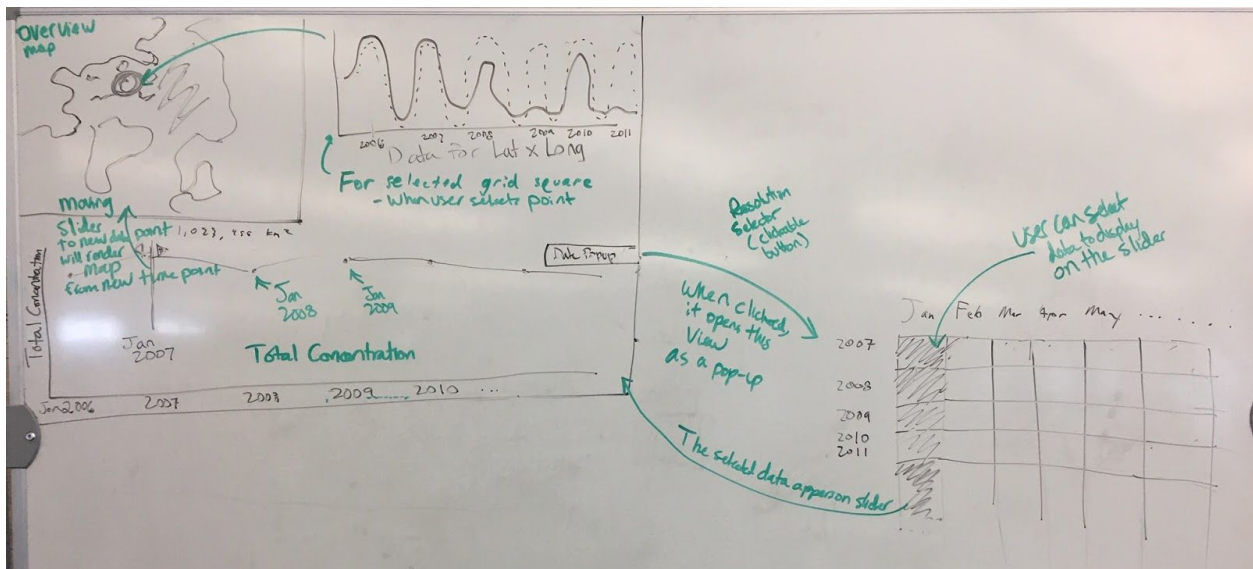 Overview
map
2006 2007 2008 2009 2010 2011
Data for Lat x Long
For selected grid square
- When user selects point
Moving
slider
to new data point
will render
map
from new time point
km²
Total Concentration
Jan
2007
Jan
2008
Jan
2009
Total Concentration
Jan 2006 2007 2008 2009 2010 ...
Resolution
Selector
(clickable
button)
When clicked,
it opens this
View
as a pop-up
The selected data appears on slider
User can select
data to display
on the slider
Jan Feb Mar Apr May .......
2007
2008
2009
2010
2011